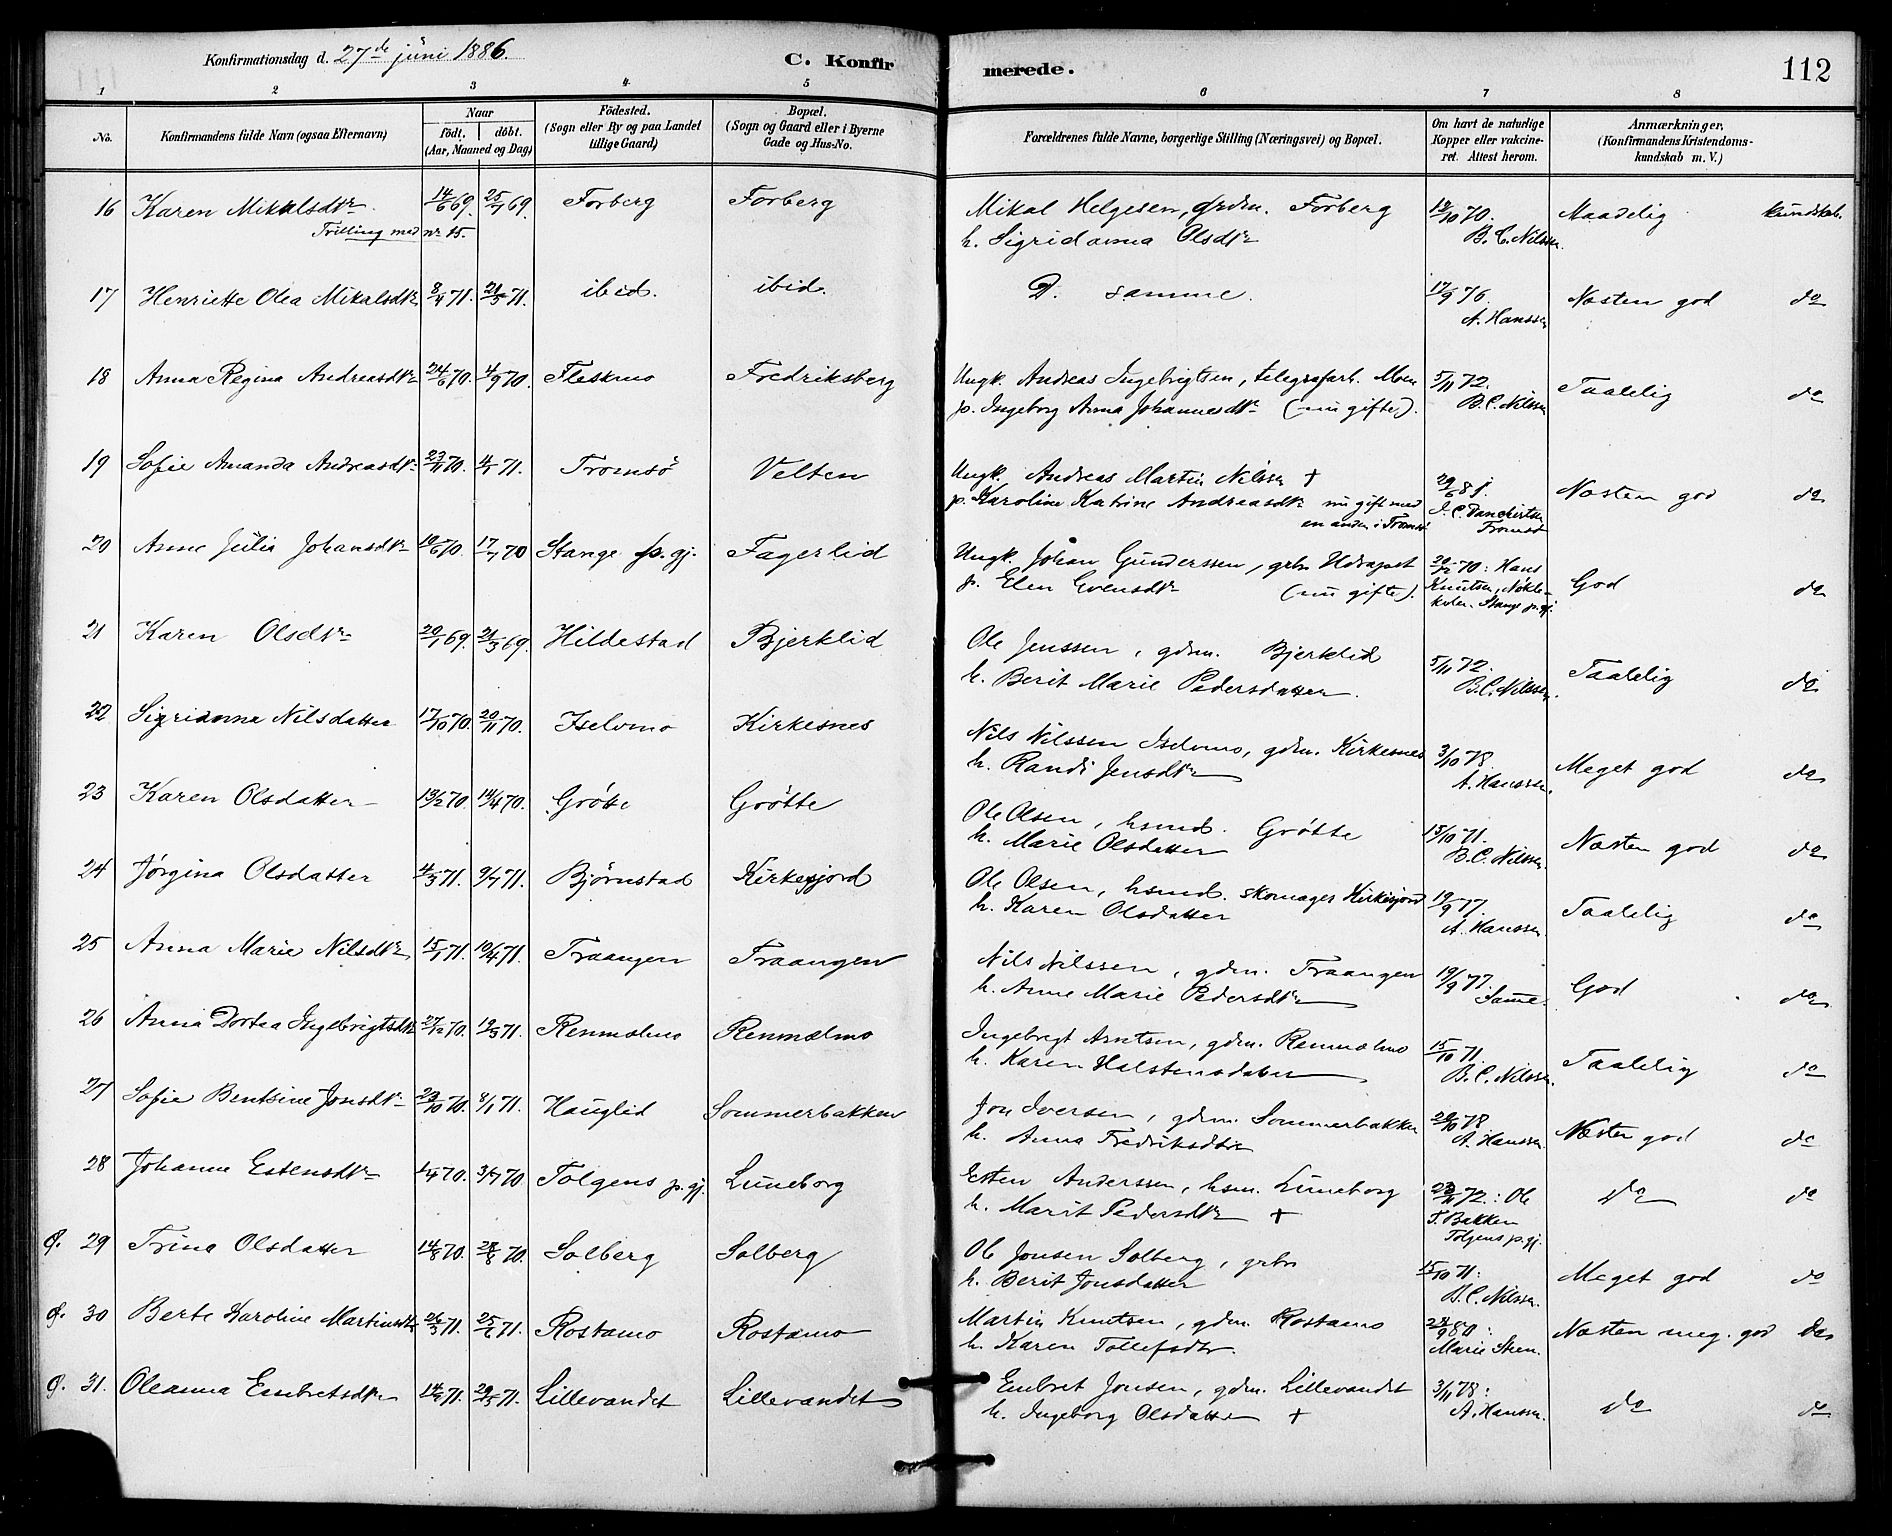 Konfirmationsdag d. 27de juni 1886.
C. Konfirmerede.
112
1 2 3 4 5 6 7 8
No. Konfirmandens fulde Navn (ogsaa Efternavn) Naar födt. döbt. (Aar, Maaned og Dag) Födested. (Sogn eller By og paa Landet tillige Gaard) Bopæl. (Sogn og Gaard eller i Byerne Gade og Hus-No. Forældrenes fulde Navne, borgerlige Stilling (Næringsvei) og Bopæl. Om havt de naturlige Kopper eller vakcineret. Attest herom. Anmærkninger. (Konfirmandens Kristendomskundskab m. V.)
16 Karen Mikalsdtr. 14/6 69. 25/7 69. Forberg Forberg Mikal Helgesen, grdm. Forberg 12/10 70. Maadelig kundskab.
Trilling med nr 15. h. Sigridanna Olsdtr B. C. Nilssen.
17 Henriette Olea Mikalsdtr 8/4 71. 21/5 71. ibid. ibid. D. samme. 17/9 76. Næsten god do
A. Hanssen
18 Anna Regina Andreasdtr 24/6 70. 4/9 70. Fleskmo Fredriksberg Ungk. Andreas Ingebrigtsen, telegrafarb. Moen 5/11 72. Taalelig do
p. Ingeborg Anna Johannesdtr (nu gifte). B.C. Nilssen
19 Sofie Amanda Andreasdtr 23/11 70. 4/1 71. Tromsö Velten Ungk. Andreas Martin Nilssen + 29/6 81. Næsten god do
p. Karoline Katrine Andreasdtr nu gift med en anden i Tromsö J. C. Danckertsen Tromsö
20 Anne Julia Johansdtr 10/6 70. 17/7 70 Stange p. gj. Fagerlid Ungk. Johan Gunderssen, grbr 70: Hans God do
p. Elen Evensdtr (nu gifte). Knutsen, Stange p. gj.
21 Karen Olsdtr 20/1 69. 21/3 69. Hildestad Bjerklid Ole Jenssen, gdm. Bjerklid 5/11 72. Taalelig do
h. Berit Marie Pedersdatter. B.C. Nilssen.
22 Sigrianna Nilsdatter 17/10 70. 20/11 70. Iselvmo Kirkesnes Nils Nilssen Iselvmo, gdm. Kirkesnes 3/10 78. Meget god do
h. Randi Jensdtr A. Hanssen.
23 Karen Olsdatter 13/2 70. 14/4 70. Grötte Grötte Ole Olsen, hsmd. Grötte 15/10 71. Næsten god do
h. Marie Olsdatter B.C. Nilssen.
24 Jørgina Olsdatter 4/3 71. 9/7 71. Bjørnstad Kirkesjord Ole Olsen, hsmd. skomager Kirkesjord 19/9 77. Taalelig do
h. Karen Olsdatter A. Hanssen.
25 Anna Marie Nilsdtr 15/1 71. 10/4 71. Traangen Traangen Nils Nilssen, gdm. Traangen 19/9 77. God do
h. Anne Marie Pedersdtr Samme.
26 Anna Dortea Ingebrigtsdtr 27/12 70. 12/3 71. Renmælmo Renmælmo Ingebregt Arntsen, gdm. Renmælmo 15/10 71 Taalelig do
h. Karen Halstensdatter B.C. Nilssen.
27 Sofie Bentsine Jonsdtr 23/10 70. 8/1 71. Hauglid Sommerbakken Jon Iversen, gdm. Sommerbakken 20/10 78 Næsten god do
h. Anna Fredriksdtr A. Hanssen.
28 Johanne Estensdtr 1/4 70. 3/7 70 Tolgens p. gj. Luneborg Esten Anderssen, hsm. Luneborg 23/11 72: Ole do do
h. Marit Pedersdtr + T. Bakken Tolgens p. gj.
Ø. 29 Trina Olsdatter 14/8 70. 28/8 70. Solberg Solberg Ole Jonsen Solberg, grbr 15/10 71: Meget god do
h. Berit Jonsdatter B.C. Nilssen.
Ø. 30 Berte Karoline Martinsdtr 26/3 71. 25/6 71. Rostamo Rostamo Martin Knutsen, gdm. Rostamo 28/9 80: Næsten meg. god do
h. Karen Tollefsdtr. Marie Steen.
Ø. 31. Oleanna Embretsdtr 14/4 71. 29/5 71. Lillevandet Lillevandet Embret Jonsen, gdm. Lillevandet 3/11 78: do do
h. Ingeborg Olsdatter + A. Hanssen.